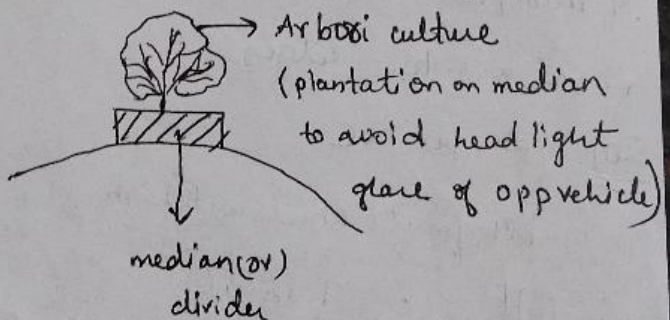 Arbori culture
(plantation on median
to avoid head light
glare of opp vehicle)
median (or)
divider